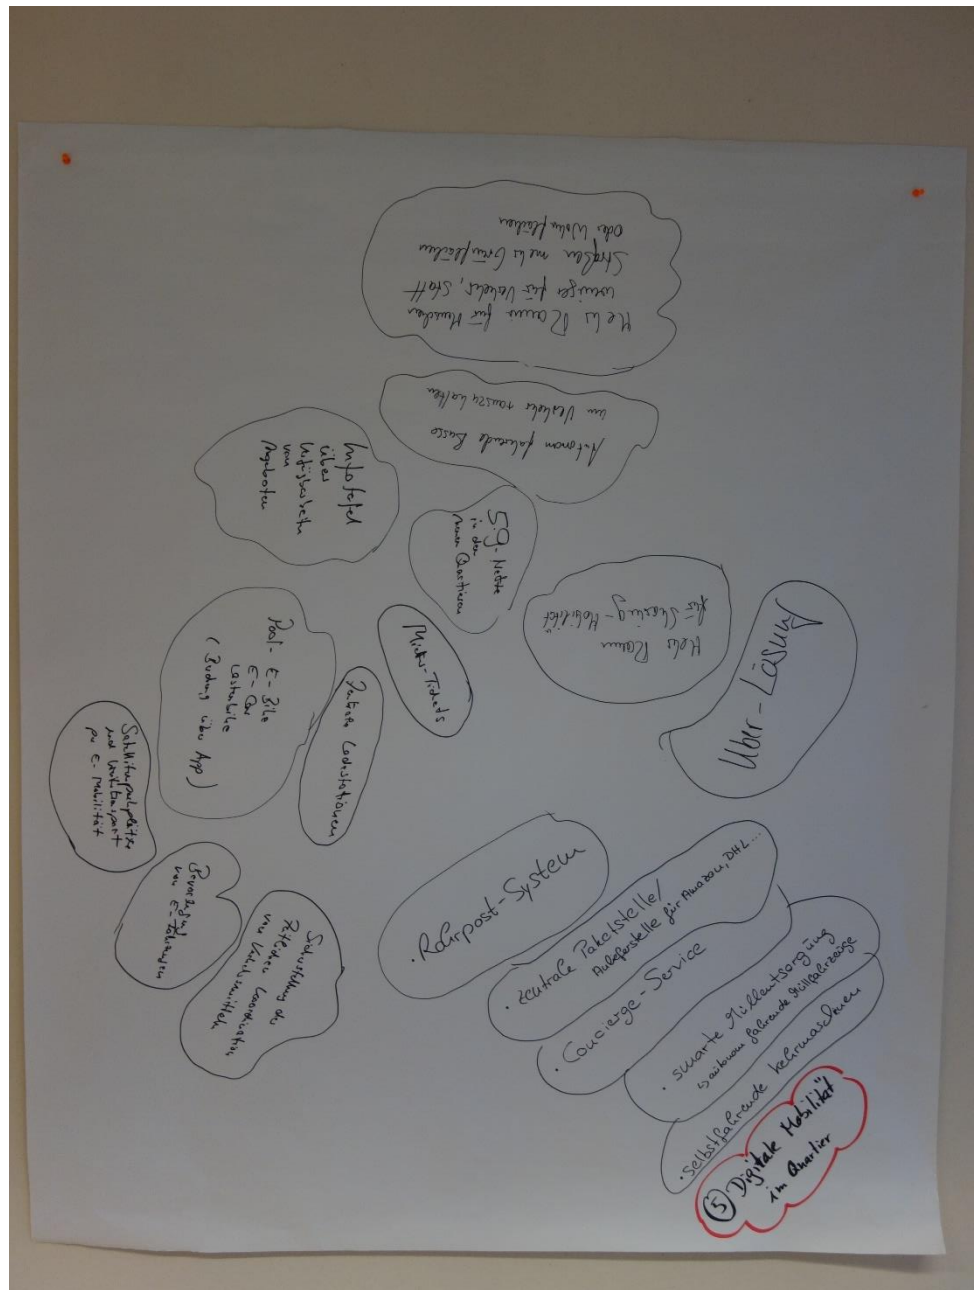 ⑤ Digitale Mobilität
im Quartier
· selbstfahrende Kehrmaschinen
· smarte Müllentsorgung
↳ autonom fahrende Müllfahrzeuge
· Concierge-Service
· zentrale Paketstelle/
Anlieferstelle für Amazon, DHL...
· Rohrpost-System
Über-Lösung
Mehr Raum
für Shearing-Mobilität
5g-Netze
in den
neuen Quartieren
Mieter-Tickets
Ladestationen
Autonom fahrende Busse
um Verkehr rauszuhalten
Mehr Raum für Menschen
weniger für Verkehr, statt
Straßen mehr Grünflächen
oder Wohnflächen
Infotafel
über
von
Angeboten
Pool- E-Bike
E-Car
Lastenbike
(Buchung über App)
Satellitenparkplätze
und
per E-Mobilität
Bevorzugung
von E-Fahrzeugen
Sicherstellung der
zeitlichen Koordination
von Verkehrsmitteln